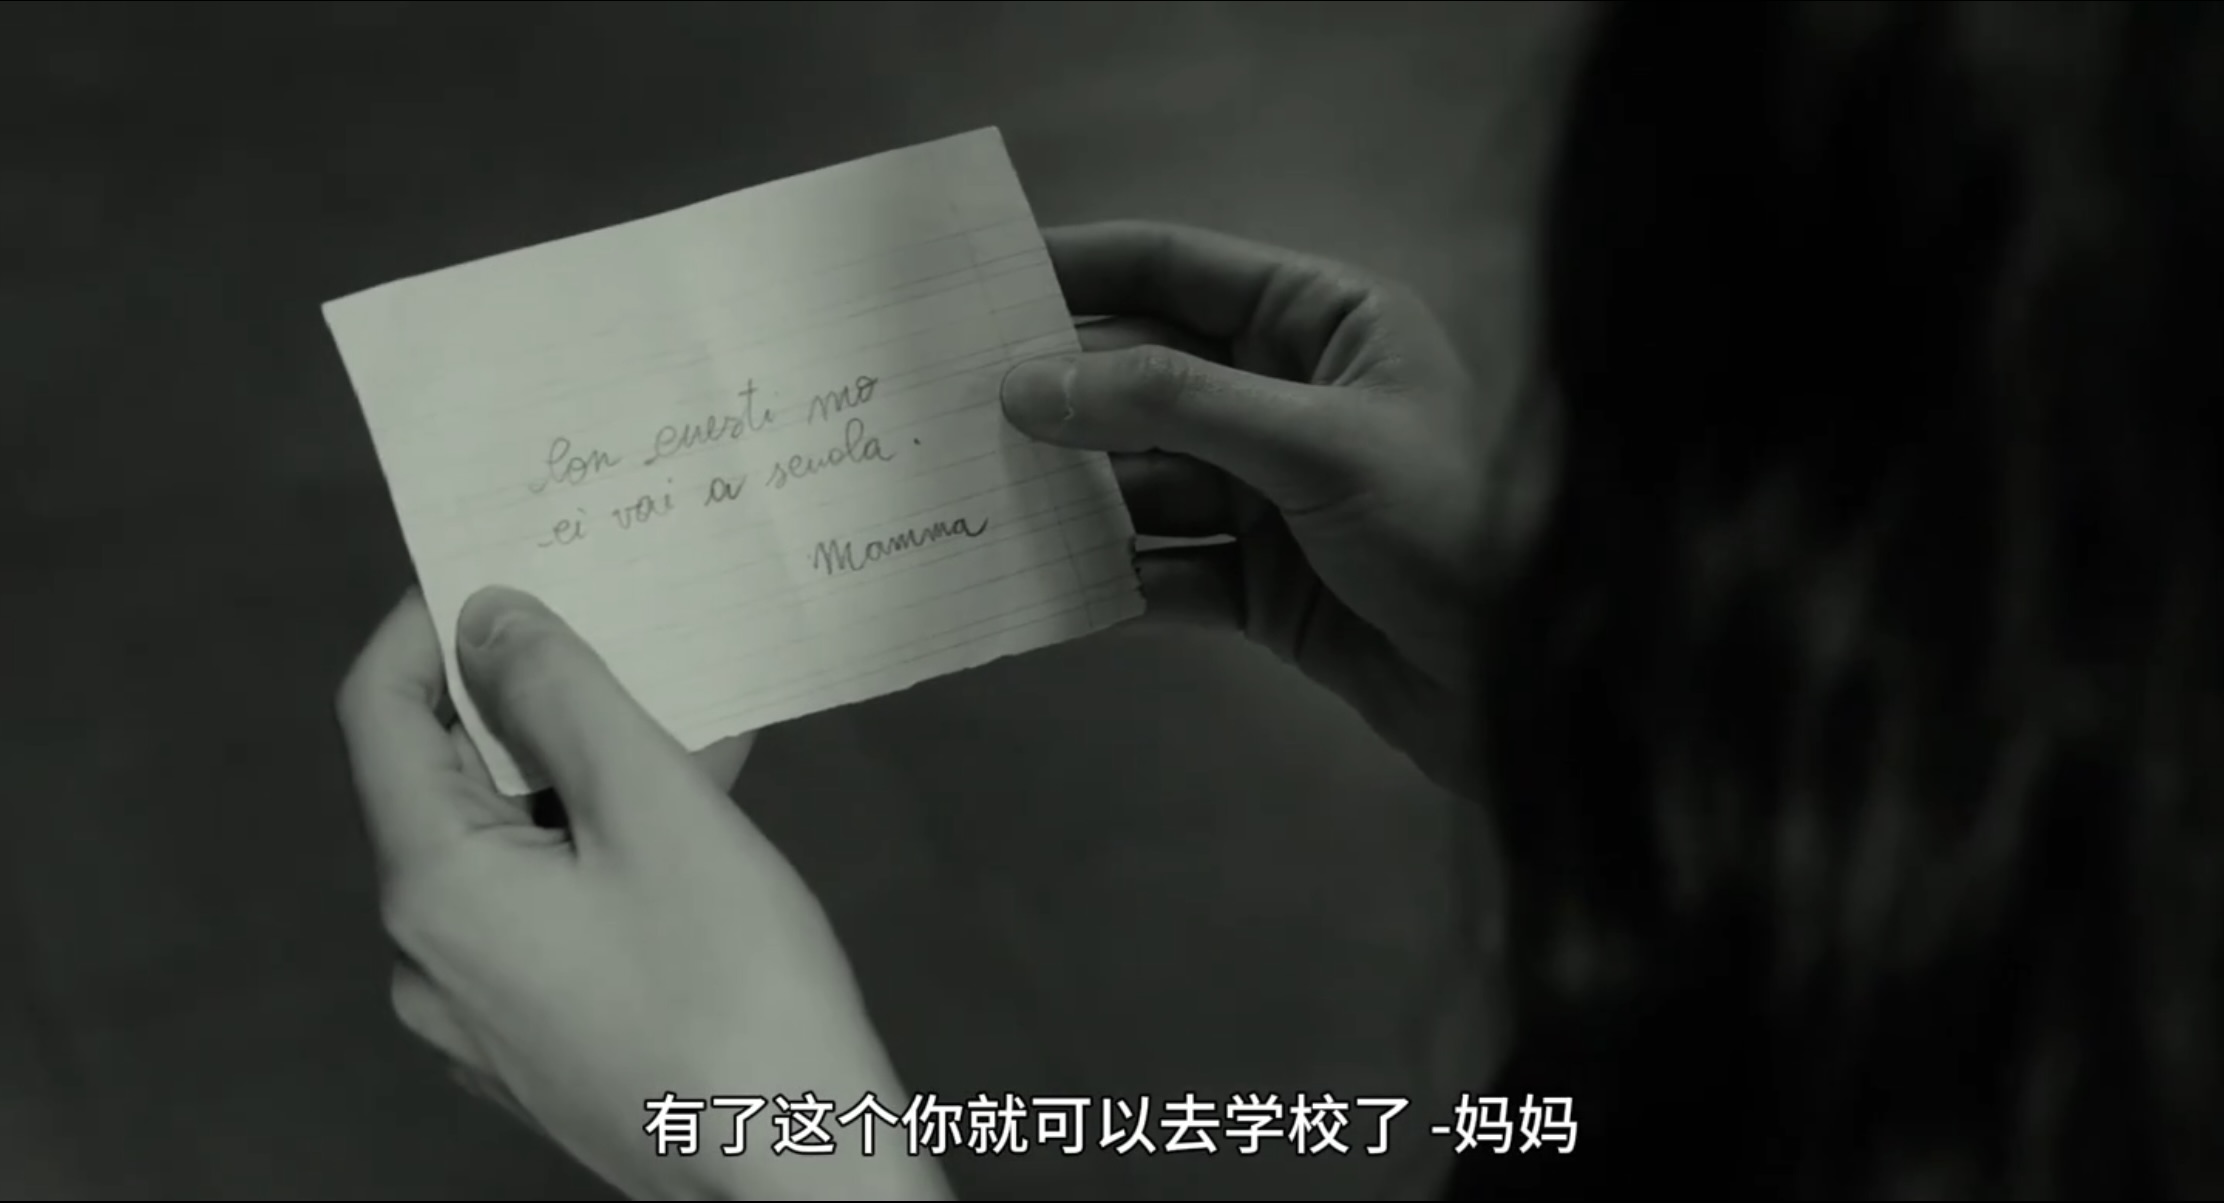 Con cuesti mo
ci vai a scuola.
Mamma
有了这个你就可以去学校了 -妈妈